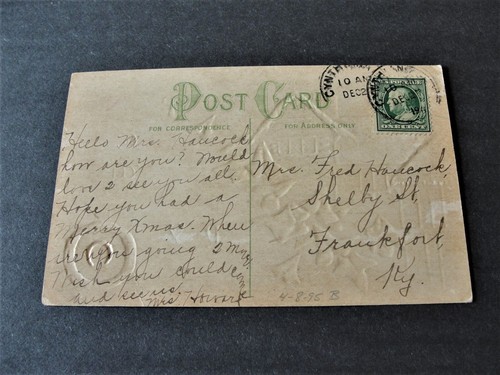 POST CARD
FOR CORRESPONDENCE
FOR ADDRESS ONLY
CYNTHIANA
10 AM
DEC
ONE CENT
Hello Mrs. Hancock
how are you? Would
love 2 see you all.
Hope you had a
Merry Xmas. When
are you going 2
Wish you could come
and see us.—
Mrs Howard
Mrs. Fred Hancock,
Shelby St,
Frankfort,
Ky.
4-8-95 B